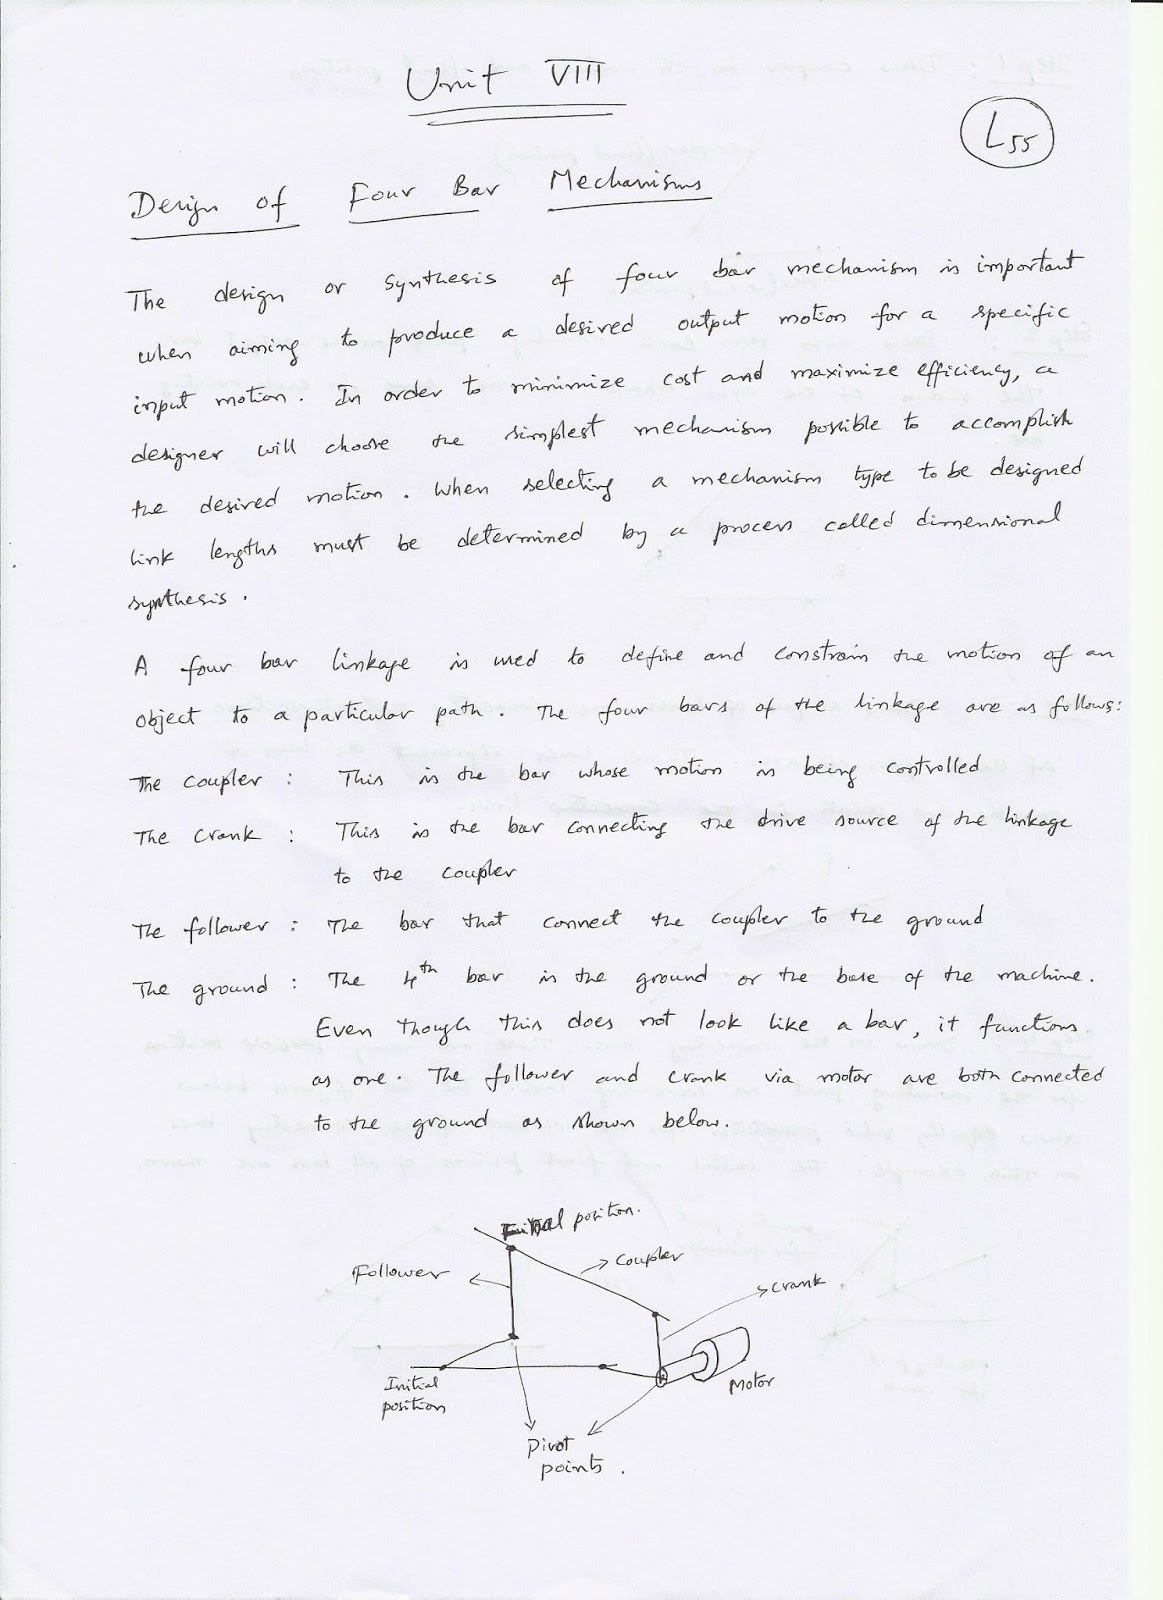 Unit VIII
L55
Design of Four Bar Mechanisms
The design or synthesis of four bar mechanism is important
when aiming to produce a desired output motion for a specific
input motion. In order to minimize cost and maximize efficiency, a
designer will choose the simplest mechanism possible to accomplish
the desired motion. When selecting a mechanism type to be designed
link lengths must be determined by a process called dimensional
synthesis.
A four bar linkage is used to define and constrain the motion of an
object to a particular path. The four bars of the linkage are as follows:
The coupler : This is the bar whose motion is being controlled
The Crank : This is the bar connecting the drive source of the linkage
to the coupler
The follower : The bar that connect the coupler to the ground
The ground : The 4th bar is the ground or the base of the machine.
Even though this does not look like a bar, it functions
as one. The follower and crank via motor are both connected
to the ground as shown below.
position.
Coupler
Follower
Crank
Initial
position
Motor
Pivot
points.